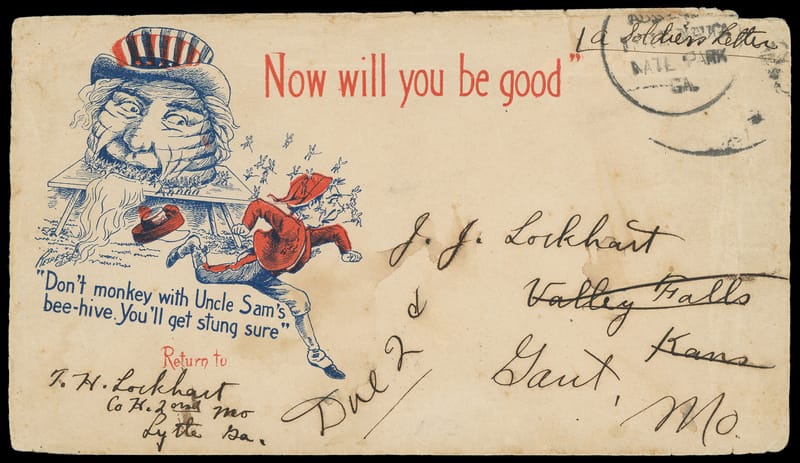 Now will you be good"
a Soldiers Letter
NATL PARK
GA.
"Don't monkey with Uncle Sam's
bee-hive. You'll get stung sure"
Return to
T. H. Lockhart
Co H. 2nd Mo
Lytle Ga.
J. J. Lockhart
Valley Falls
Kans
Gant,
Mo.
Due 2 ¢